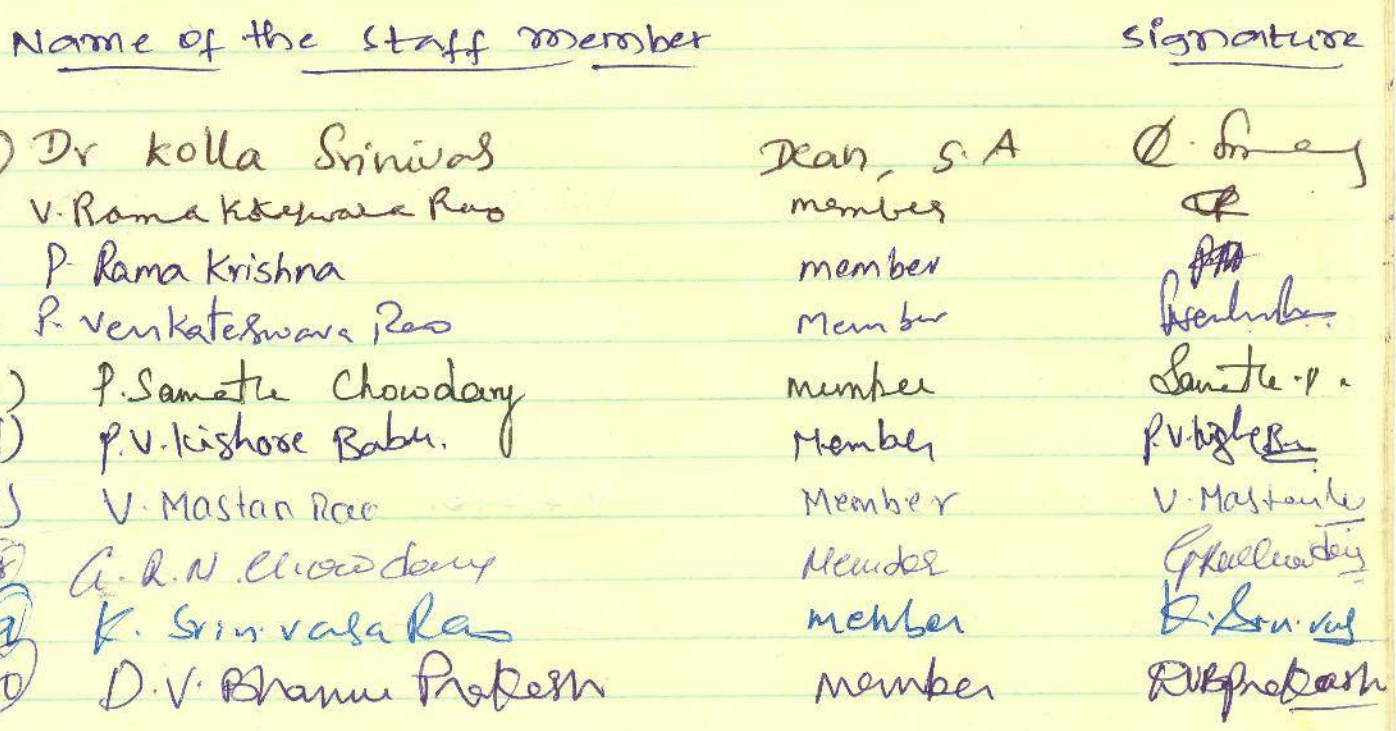 Name of the staff member signature
) Dr Kolla Srinivas Dean, S.A
V. Rama Koteswara Rao member
P. Rama Krishna member
P. Venkateswara Rao Member
) P. Samatha Chowdary member
) P.V. Kishore Babu. Member P.V. Kishore
) V. Mastan Rao Member V. Mastan
G.R.N. Chowdary Member
9) K. Srinivasa Rao member K. Srinivas
0) D.V. Bhanu Prakash member DVBPrakash